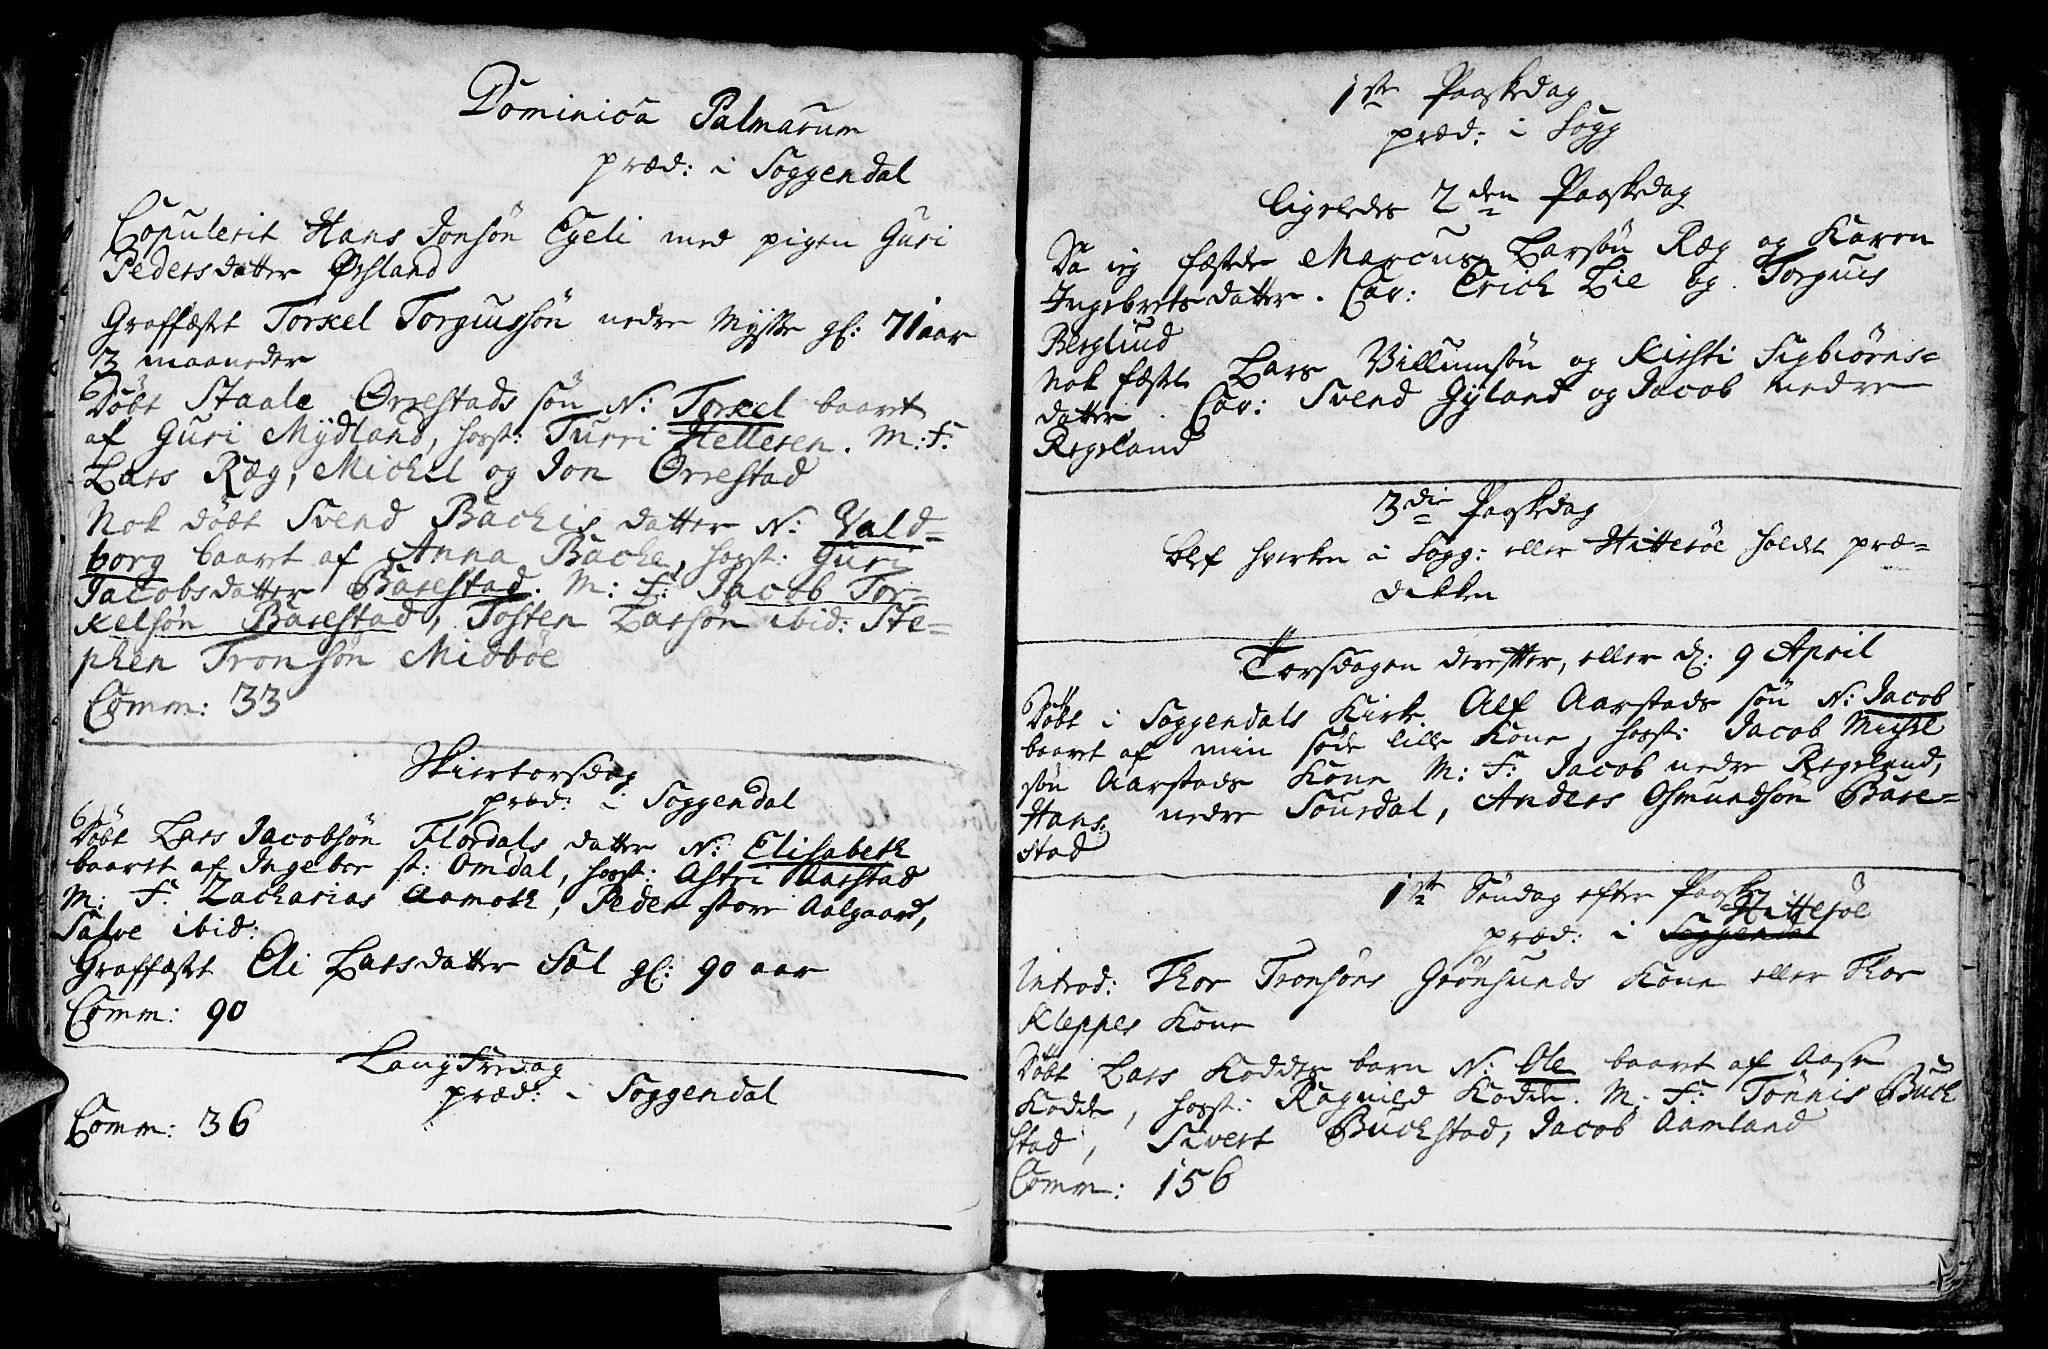 Dominica Palmarum
præd: i Soggendal
Copulerit Hans Jonsøn Egeli med pigen Guri
Pedersdatter Ørsland
Graffæstet Torkel Torguussøn nedre Mysse gl: 71 aar
3 maaneder
Døbt Staale Ørrestads søn N: Torkel baaret
af Guri Mydland, hosst: Turri Helleren. M: F:
Lars Ræg, Michel og Jon Ørrestad
Nok døbt Svend Bachis datter N: Vald-
borg baaret af Anna Bache, hosst: Guri
Jacobsdatter Barestad. M: F: Jacob Tor-
kelsøn Barestad, Tosten Larsøn ibid: Ste-
phen Tronsøn Midbøe
Comm: 33
Skiertorsdag
præd: i Soggendal
Døbt Lars Jacobsøn Flordals datter N: Elisabeth
baaret af Ingebor st: Omdal, hosst: Astri Aarstad
M: F: Zacharias Aamoth, Peder store Aalgaard,
Salve ibid:
Graffæstet Eli Larsdatter Sæl gl: 90 aar
Comm: 90
Langfredag
præd: i Soggendal
Comm: 36
1ste Paaskedag
præd: i Sogg
ligeledes 2den Paaskedag
Da ieg fæstede Marcus Larsøn Ræg og Karen
Ingebretsdatter. Cav: Erich Lie og Torguus
Berglund
Nok fæstet Lars Villumsøn og Kirsti Sigbiørns-
datter. Cav: Svend Gyland og Jacob nedre
Regeland
3die Paaskedag
blef hverken i Sogg: eller Hitterøe holdt præ-
dikken
Torsdagen derefter, eller d: 9 April
Døbt i Soggendals Kirke Alf Aarstads søn N: Jacob
baaret af min søde lille Kone, hosst: Jacob Michel
søn Aarstads Kone M: F: Jacob nedre Regeland,
Hans nedre Sourdal, Anders Osmundsøn Bare-
stad
1ste Søndag efter Paaske
præd: i Soggendal Hitterøe
Introd: Thor Tronsøns Grønsunds Kone eller Thor
Kleppes Kone
Døbt Lars Kodder barn N: Ole baaret af Aase
Kodde, hosst: Ragnild Kodde. M: F: Tønnis Buch
stad, Sivert Buchstad, Jacob Aamland
Comm: 156